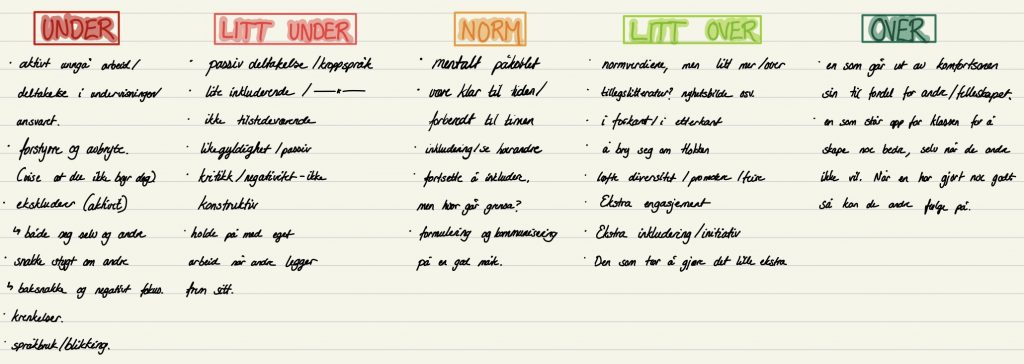 UNDER
· aktivt unngå arbeid/
deltakelse i undervisningen/
ansvaret.
· forstyrre og avbryte.
(vise at der ikke bryr deg)
· ekskluderer (aktivt)
↳ både seg selv og andre
· snakke stygt om andre
↳ baksnakke og negativt fokus.
· krenkelser.
· språkbruk/blikking.
LITT UNDER
· passiv deltakelse/kroppspråk
· lite inkluderende / —"—
· ikke tilstedeværende
· likegyldighet/passiv
· kritikk/negativitet - ikke
konstruktiv
· holde på med eget
arbeid når andre legger
frem sitt.
NORM
· mentalt påkoblet
· være klar til tiden/
forberedt til timen
· inkludering/se hverandre
fortsette å inkluder,
men hvor går grensa?
· formulering og kommunisering
på en god måte.
LITT OVER
· normverdiene, men litt mer/over
· tilleggslitteratur? nyhetsbilde osv.
· i forkant/i etterkant
· å bry seg om flokken
· løfte diversitet/promotere/feire
· Ekstra engasjement
· Ekstra inkludering/initiativ
· Den som tør å gjøre det lille ekstra
OVER
· en som går ut av komfortsonen
sin til fordel for andre/felleskapet.
· en som står opp for klassen for å
skape noe bedre, selv når de andre
ikke vil. Når en har gjort noe godt
så kan de andre følge på.